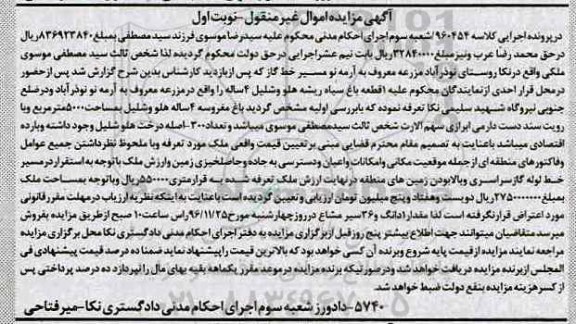 آگهی مزایده اموال غیرمنقول - نوبت اول
در پرونده اجرایی کلاسه ۹۶۰۴۵۴ شعبه سوم اجرای احکام مدنی محکوم علیه سیدرضا موسوی فرزند سید مصطفی بمبلغ ۸۳۶۹۲۳۸۴۰ ریال
در حق محمد رضا عرب و نیز مبلغ ۳۲۸۴۰۰۰۰ ریال بابت نیم عشر اجرایی در حق دولت محکوم گردیده لذا شخص ثالث سید مصطفی موسوی
ملکی واقع در نکا روستای نوذرآباد مزرعه معروف به آرمه نو مسیر خط گاز که پس از بازدید کارشناس بدین شرح گزارش شد پس از حضور
در محل قرار احدی از نمایندگان محکوم علیه ۱ قطعه باغ سیاه ریشه هلو و شلیل ۴ ساله را واقع در مزرعه معروف به آرمه نو نوذرآباد و در ضلع
جنوبی نیروگاه شهید سلیمی نکا تعرفه نموده که با بررسی اولیه مشخص گردید باغ مغروسه ۴ ساله هلو و شلیل بمساحت ۵۰۰۰ مترمربع و با
رویت سند دست دارمی ابرازی سهم الارث شخص ثالث سید مصطفی موسوی میباشد و تعداد ۳۰۰ اصله درخت هلو شلیل وجود داشته و بارده
اقتصادی میباشد با عنایت به تصمیم مقام محترم قضایی مبنی بر تعیین قیمت واقعی ملک مورد تعرفه و با ملحوظ نظر داشتن جمیع عوامل
و فاکتورهای منطقه ای از جمله موقعیت مکانی و امکانات و اعیان و دسترسی به جاده و حاصلخیزی زمین و ارزش ملک با توجه به استقرار در مسیر
خط لوله گاز سراسری و بالا بودن زمین های منطقه در نهایت ارزش ملک تعرفه شده به قرار متری ۵۵۰۰۰۰ ریال و با توجه به مساحت ملک
بمبلغ ۲۷۵۰۰۰۰۰۰۰ ریال دو بیست و هفتاد و پنج میلیون تومان ارزیابی و تعیین گردیده است با عنایت به اینکه نظریه ارزیاب در مهلت مقرر قانونی
مورد اعتراض قرار نگرفته است لذا مقدار ۱ دانگ و ۳۶ سیر مشاع در روز چهارشنبه مورخ ۹۶/۱۱/۲۵ راس ساعت ۱۰ صبح از طریق مزایده بفروش
میرسد متقاضیان میتوانند جهت اطلاع بیشتر پنج روز قبل از برگزاری مزایده به دفتر اجرای احکام مدنی دادگستری نکا محل برگزاری مزایده
مراجعه نمایند مزایده از قیمت پایه شروع و برنده آن کسی خواهد بود که بالاترین قیمت را پیشنهاد نماید ضمنا ده درصد قیمت پیشنهادی فی
المجلس از برنده مزایده دریافت خواهد شد و در صورتیکه برنده مزایده در موعد مقرر یکماهه بقیه بهای مال را نپردازد ده درصد پرداختی پس
از کسر هزینه مزایده بنفع دولت ضبط خواهد شد.
۵۷۴۰- دادورز شعبه سوم اجرای احکام مدنی دادگستری نکا- میرفتاحی